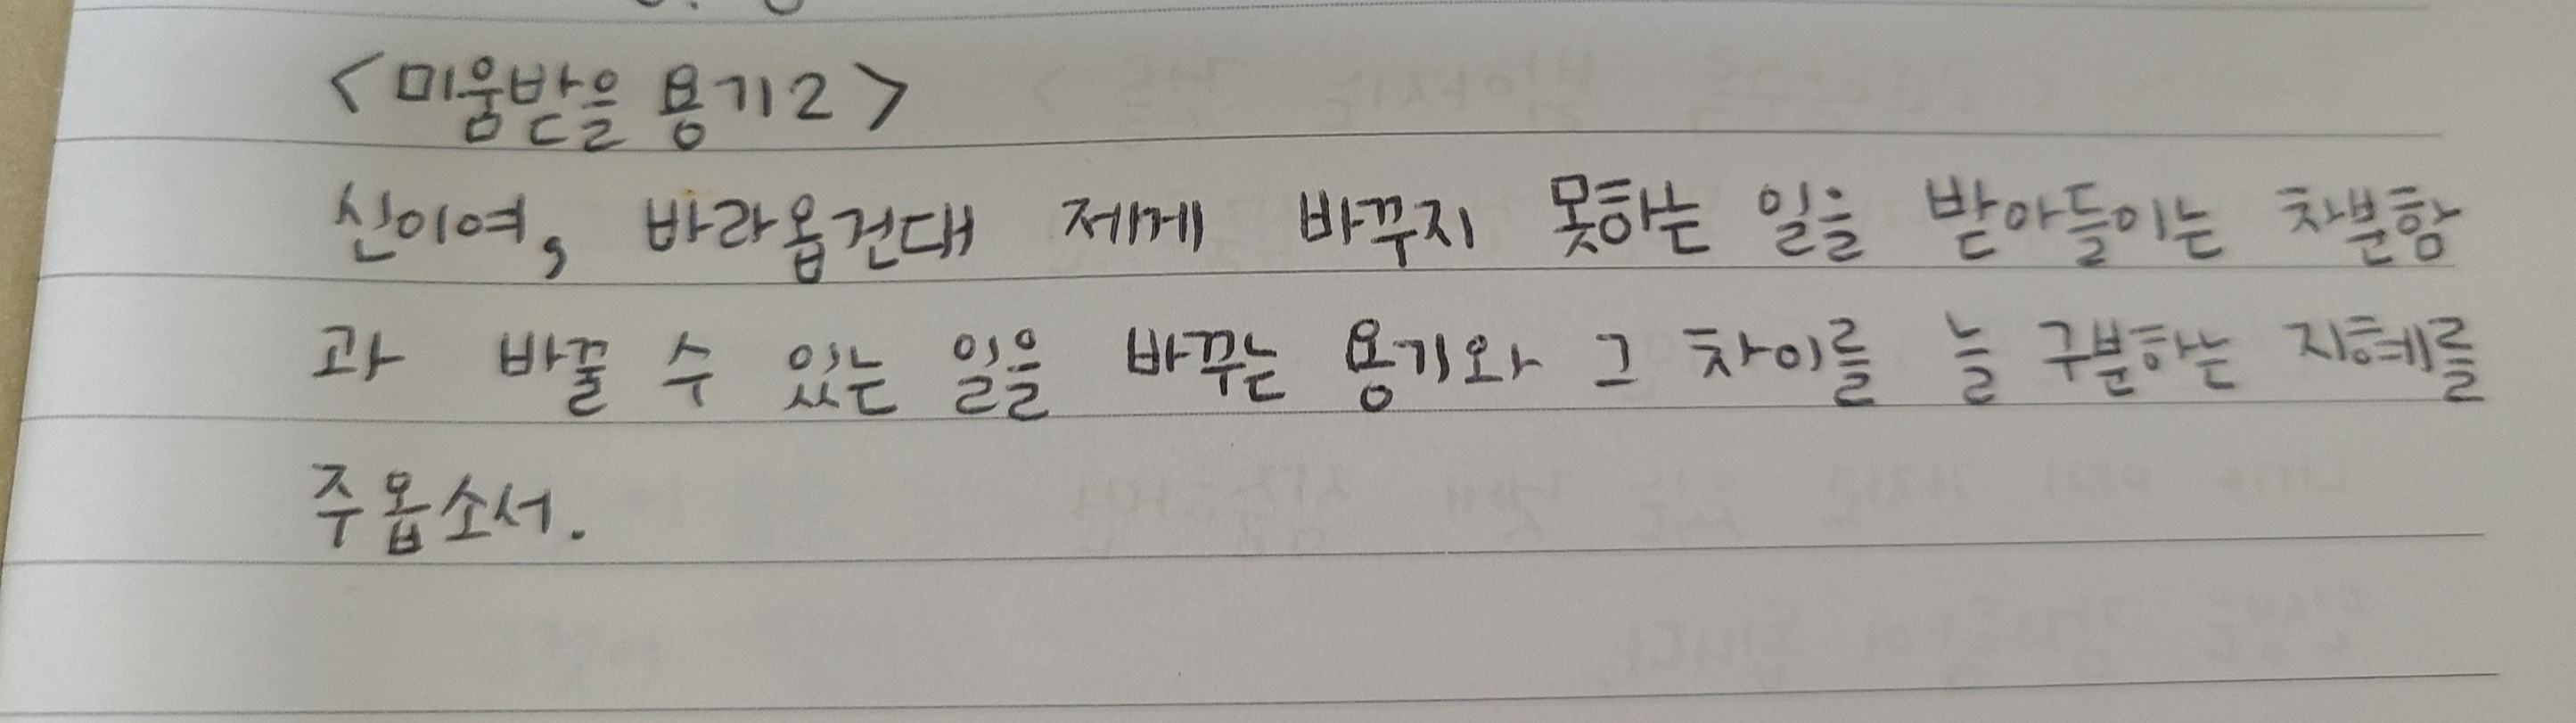 <미움받을 용기2>
신이여, 바라옵건대 제게 바꾸지 못하는 일을 받아들이는 차분함
과 바꿀 수 있는 일을 바꾸는 용기와 그 차이를 늘 구분하는 지혜를
주옵소서.